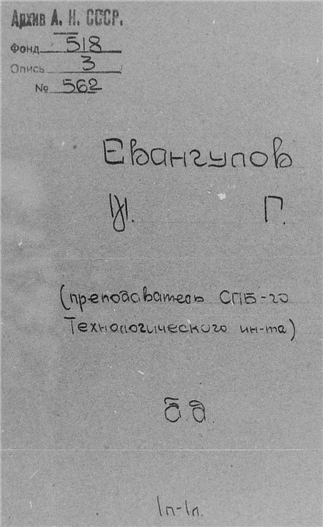 Архив А. Н. СССР.
Фонд 518
Опись 3
№ 562
Евангулов
Г.
(преподаватель СПБ-го
Технологического ин-та)
б д
1п-1л.